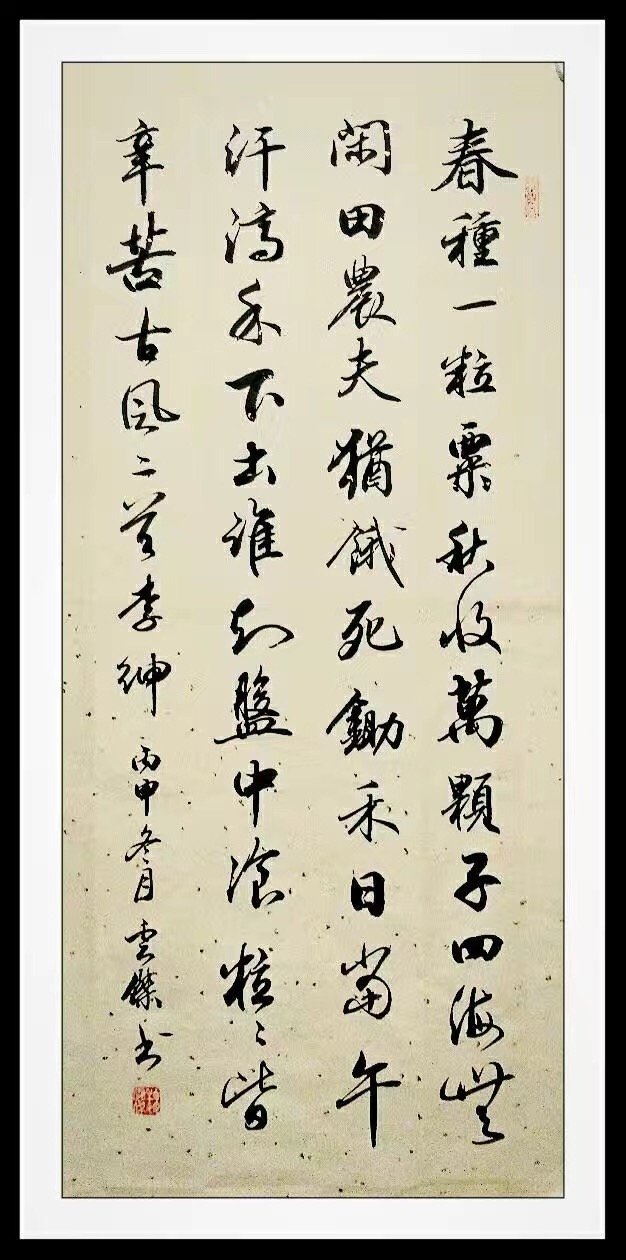 春種一粒粟秋收萬顆子四海無
閑田農夫猶餓死鋤禾日當午
汗滴禾下土誰知盤中飡粒〻皆
辛苦古風二首李紳 丙申冬月雲書